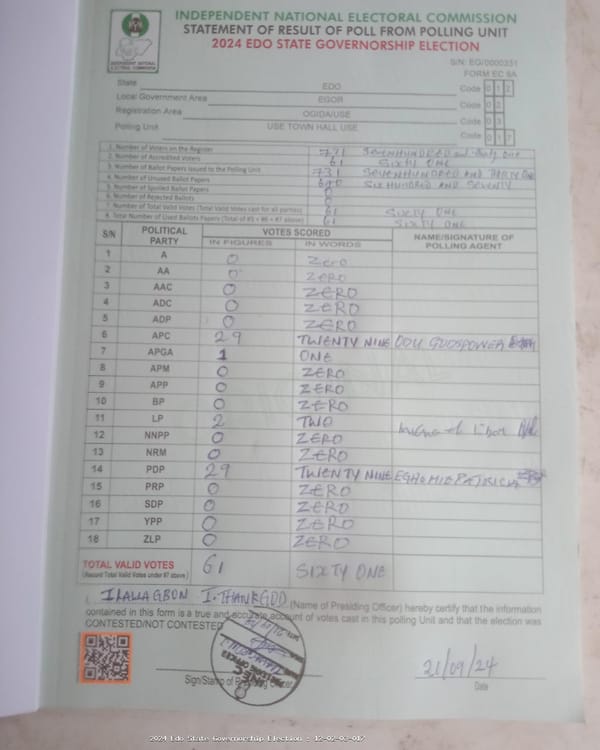 INDEPENDENT NATIONAL ELECTORAL COMMISSION
STATEMENT OF RESULT OF POLL FROM POLLING UNIT
2024 EDO STATE GOVERNORSHIP ELECTION
INDEPENDENT NATIONAL ELECTORAL COMMISSION
S/N: EG/0000331
FORM EC 8A
State EDO Code 0 1 2
Local Government Area EGOR Code 0 2
Registration Area OGIDA/USE Code 0 3
Polling Unit USE TOWN HALL USE Code 0 1 7
1. Number of Voters on the Register SEVENHUNDRED and thirty one
2. Number of Accredited Voters 61 SIXTY ONE
3. Number of Ballot Papers Issued to the Polling Unit 731 SEVENHUNDRED AND THIRTY ONE
4. Number of Unused Ballot Papers SIX HUNDRED AND SEVENTY
5. Number of Spoiled Ballot Papers 0
6. Number of Rejected Ballots 0
7. Number of Total Valid Votes (Total Valid Votes cast for all parties) 61 SIXTY ONE
8. Total Number of Used Ballots Papers (Total of #5 + #6 + #7 above) 61 SIXTY ONE
S/N POLITICAL PARTY VOTES SCORED NAME/SIGNATURE OF POLLING AGENT
IN FIGURES IN WORDS
1 A 0 Zero
2 AA 0 ZERO
3 AAC 0 ZERO
4 ADC 0 ZERO
5 ADP 0 ZERO
6 APC 29 TWENTY NINE ODU GODSPOWER
7 APGA 1 ONE
8 APM 0 ZERO
9 APP 0 ZERO
10 BP 0 ZERO
11 LP 2 TWO
12 NNPP 0 ZERO
13 NRM 0 ZERO
14 PDP 29 TWENTY NINE PATRICK
15 PRP 0 ZERO
16 SDP 0 ZERO
17 YPP 0 ZERO
18 ZLP 0 ZERO
TOTAL VALID VOTES 61 SIXTY ONE
(Record Total Valid Votes under #7 above)
I, I. THANKGOD (Name of Presiding Officer) hereby certify that the information
contained in this form is a true and accurate account of votes cast in this polling Unit and that the election was
CONTESTED/NOT CONTESTED
21/09/24
Sign/Stamp of Presiding Officer
Date
2024 Edo State Governorship Election : 12-02-03-017